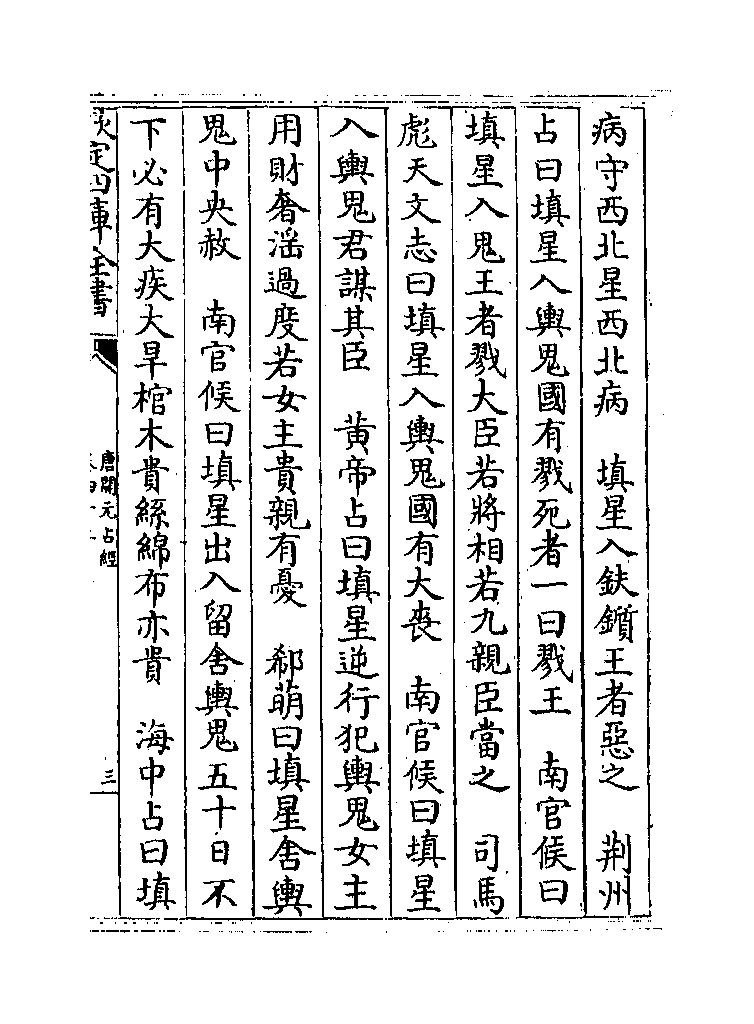 病守西北星西北病　填星入鈇鑕王者惡之　荆州
占曰填星入輿鬼國有戮死者一曰戮王　南官候曰
填星入鬼王者戮大臣若將相若九親臣當之　司馬
彪天文志曰填星入輿鬼國有大喪　南官候曰填星
入輿鬼君謀其臣　黄帝占曰填星逆行犯輿鬼女主
用財奢滛過度若女主貴親有憂　郗萌曰填星舍輿
鬼中央赦　南官候曰填星出入留舍輿鬼五十日不
下必有大疾大旱棺木貴絲綿布亦貴　海中占曰填
欽定四庫全書
唐開元占經
三